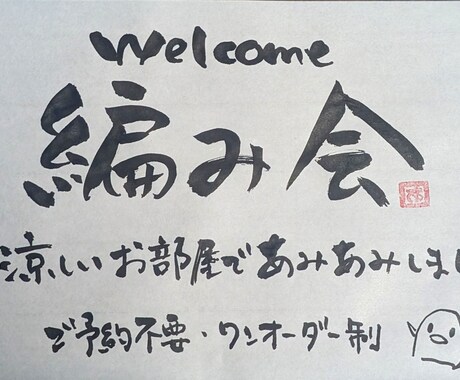 Welcome
編み会
涼しいお部屋であみあみしまし
ご予約不要・ワンオーダー制